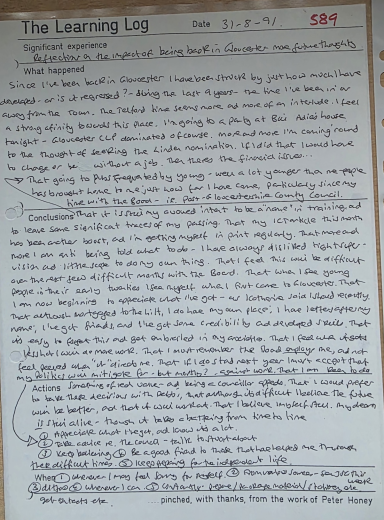 The Learning Log Date 31-8-91. 589
Significant experience
Reflection on the impact of being back in Gloucester more future thoughts
What happened
Since I've been back in Gloucester I have been struck by just how much I have
developed - or is it regressed? - during the last 9 years - the time I've been in or
away from the Town. The Telford time seems more and more of an interlude. I feel
a strong affinity towards this place. I'm going to a party at house
tonight - Gloucester CLP dominated of course. more and more I'm coming round
to the thought of seeking the Linden nomination. If I did that I would have
to change or be without a job. Then there's the financial issue...
That going to Pubs frequented by young - well a lot younger than me people
has brought home to me just how far I have come, particularly since my
time with the Board - i.e. Post-Gloucestershire County Council.
Conclusions That it is still my avowed intent to be a 'name' in training, and
to leave some significant traces of my passing. That my article this month
has been another boost, and in getting myself in print regularly. That more and
more I am anti being told what to do - I have always disliked tight super-
vision and little scope to do my own thing. That I feel this will be difficult
over the next few difficult months with the Board. That when I see young
people in their early twenties I see myself when I first came to Gloucester. That
I am now beginning to appreciate what I've got - as Katharine said recently.
That although mortgaged to the hilt, I do have my own place, I have letters after my
name, I've got friends, and I've got some credibility and developed skills. That
it's easy to forget this and get embroiled in my That I feel
that I will do more work. That I must remember the Board employ me, and not
feel peeved when That if I do stand next year I must accept that
my politics will mitigate for - but mostly? - against work. That I am keen to do
Actions something of real worth - and being a councillor appeals. That I would prefer
to take these decisions with Debbi, that although it's difficult I believe the future
will be better, and that it will work out. That I believe in myself still. my dream
is still alive - though it takes a battering from time to time
① Appreciate what I've got, and know it's a lot.
② Take advice re. the council - talk to about
③ Keep believing ④ Be a good friend to those that has helped me through
these difficult times. ⑤ Keep opening for the independent life
When ① Whenever I may feel sorry for myself ②
③ ditto ④ Whenever I can ⑤ Constantly
get etc. ....pinched, with thanks, from the work of Peter Honey